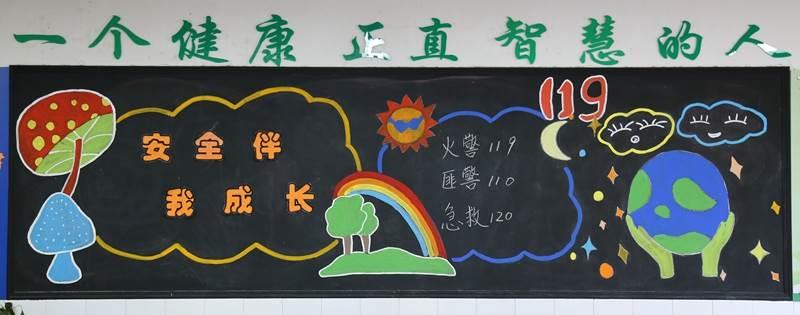 一个健康 正直智慧的人
安全伴
我成长
119
火警119
匪警110
急救120